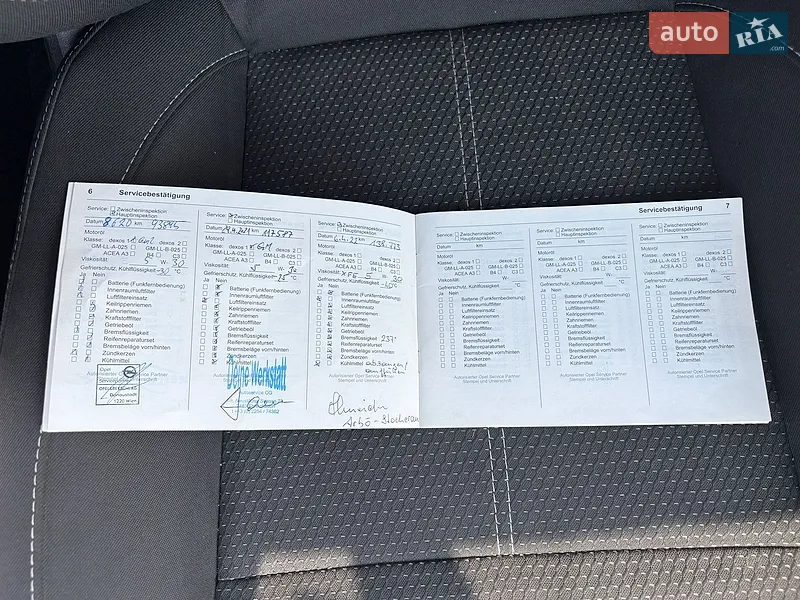 auto RIA .com
6 Servicebestätigung
Service: Zwischeninspektion
Hauptinspektion
Datum 93896 km
Motoröl
Klasse: dexos 1 dexos 2
GM-LL-A-025 GM-LL-B-025
ACEA A3 B4 C3
Viskosität 5 W 30
Gefrierschutz, Kühlflüssigkeit °C
Ja Nein
Batterie (Funkfernbedienung)
Innenraumluftfilter
Luftfiltereinsatz
Keilrippenriemen
Zahnriemen
Kraftstofffilter
Getriebeöl
Bremsflüssigkeit
Reifenreparaturset
Bremsbeläge vorn/hinten
Zündkerzen
Kühlmittel
Autorisierter Opel Service Partner
Opel
1220 Wien
Service: Zwischeninspektion
Hauptinspektion
Datum km 117517
Motoröl
Klasse: dexos 1 GM dexos 2
GM-LL-A-025 GM-LL-B-025
ACEA A3 B4 C3
Viskosität 5 W
Gefrierschutz, Kühlflüssigkeit °C
Ja Nein
Batterie (Funkfernbedienung)
Innenraumluftfilter
Luftfiltereinsatz
Keilrippenriemen
Zahnriemen
Kraftstofffilter
Getriebeöl
Bremsflüssigkeit
Reifenreparaturset
Bremsbeläge vorn/hinten
Zündkerzen
Kühlmittel
Deine Werkstatt
Autoservice OG
Service: Zwischeninspektion
Hauptinspektion
Datum km
Motoröl
Klasse: dexos 1 dexos 2
GM-LL-A-025 GM-LL-B-025
ACEA A3 B4 C3
Viskosität 5 W 30
Gefrierschutz, Kühlflüssigkeit °C
Ja Nein
Batterie (Funkfernbedienung)
Innenraumluftfilter
Luftfiltereinsatz
Keilrippenriemen
Zahnriemen
Kraftstofffilter
Getriebeöl
Bremsflüssigkeit
Reifenreparaturset
Bremsbeläge vorn/hinten
Zündkerzen
Kühlmittel
Arbö - Stockerau
Servicebestätigung 7
Service: Zwischeninspektion
Hauptinspektion
Datum km
Motoröl
Klasse: dexos 1 dexos 2
GM-LL-A-025 GM-LL-B-025
ACEA A3 B4 C3
Viskosität W
Gefrierschutz, Kühlflüssigkeit °C
Ja Nein
Batterie (Funkfernbedienung)
Innenraumluftfilter
Luftfiltereinsatz
Keilrippenriemen
Zahnriemen
Kraftstofffilter
Getriebeöl
Bremsflüssigkeit
Reifenreparaturset
Bremsbeläge vorn/hinten
Zündkerzen
Kühlmittel
Autorisierter Opel Service Partner
Stempel und Unterschrift
Service: Zwischeninspektion
Hauptinspektion
Datum km
Motoröl
Klasse: dexos 1 dexos 2
GM-LL-A-025 GM-LL-B-025
ACEA A3 B4 C3
Viskosität W
Gefrierschutz, Kühlflüssigkeit °C
Ja Nein
Batterie (Funkfernbedienung)
Innenraumluftfilter
Luftfiltereinsatz
Keilrippenriemen
Zahnriemen
Kraftstofffilter
Getriebeöl
Bremsflüssigkeit
Reifenreparaturset
Bremsbeläge vorn/hinten
Zündkerzen
Kühlmittel
Autorisierter Opel Service Partner
Stempel und Unterschrift
Service: Zwischeninspektion
Hauptinspektion
Datum km
Motoröl
Klasse: dexos 1 dexos 2
GM-LL-A-025 GM-LL-B-025
ACEA A3 B4 C3
Viskosität W
Gefrierschutz, Kühlflüssigkeit °C
Ja Nein
Batterie (Funkfernbedienung)
Innenraumluftfilter
Luftfiltereinsatz
Keilrippenriemen
Zahnriemen
Kraftstofffilter
Getriebeöl
Bremsflüssigkeit
Reifenreparaturset
Bremsbeläge vorn/hinten
Zündkerzen
Kühlmittel
Autorisierter Opel Service Partner
Stempel und Unterschrift